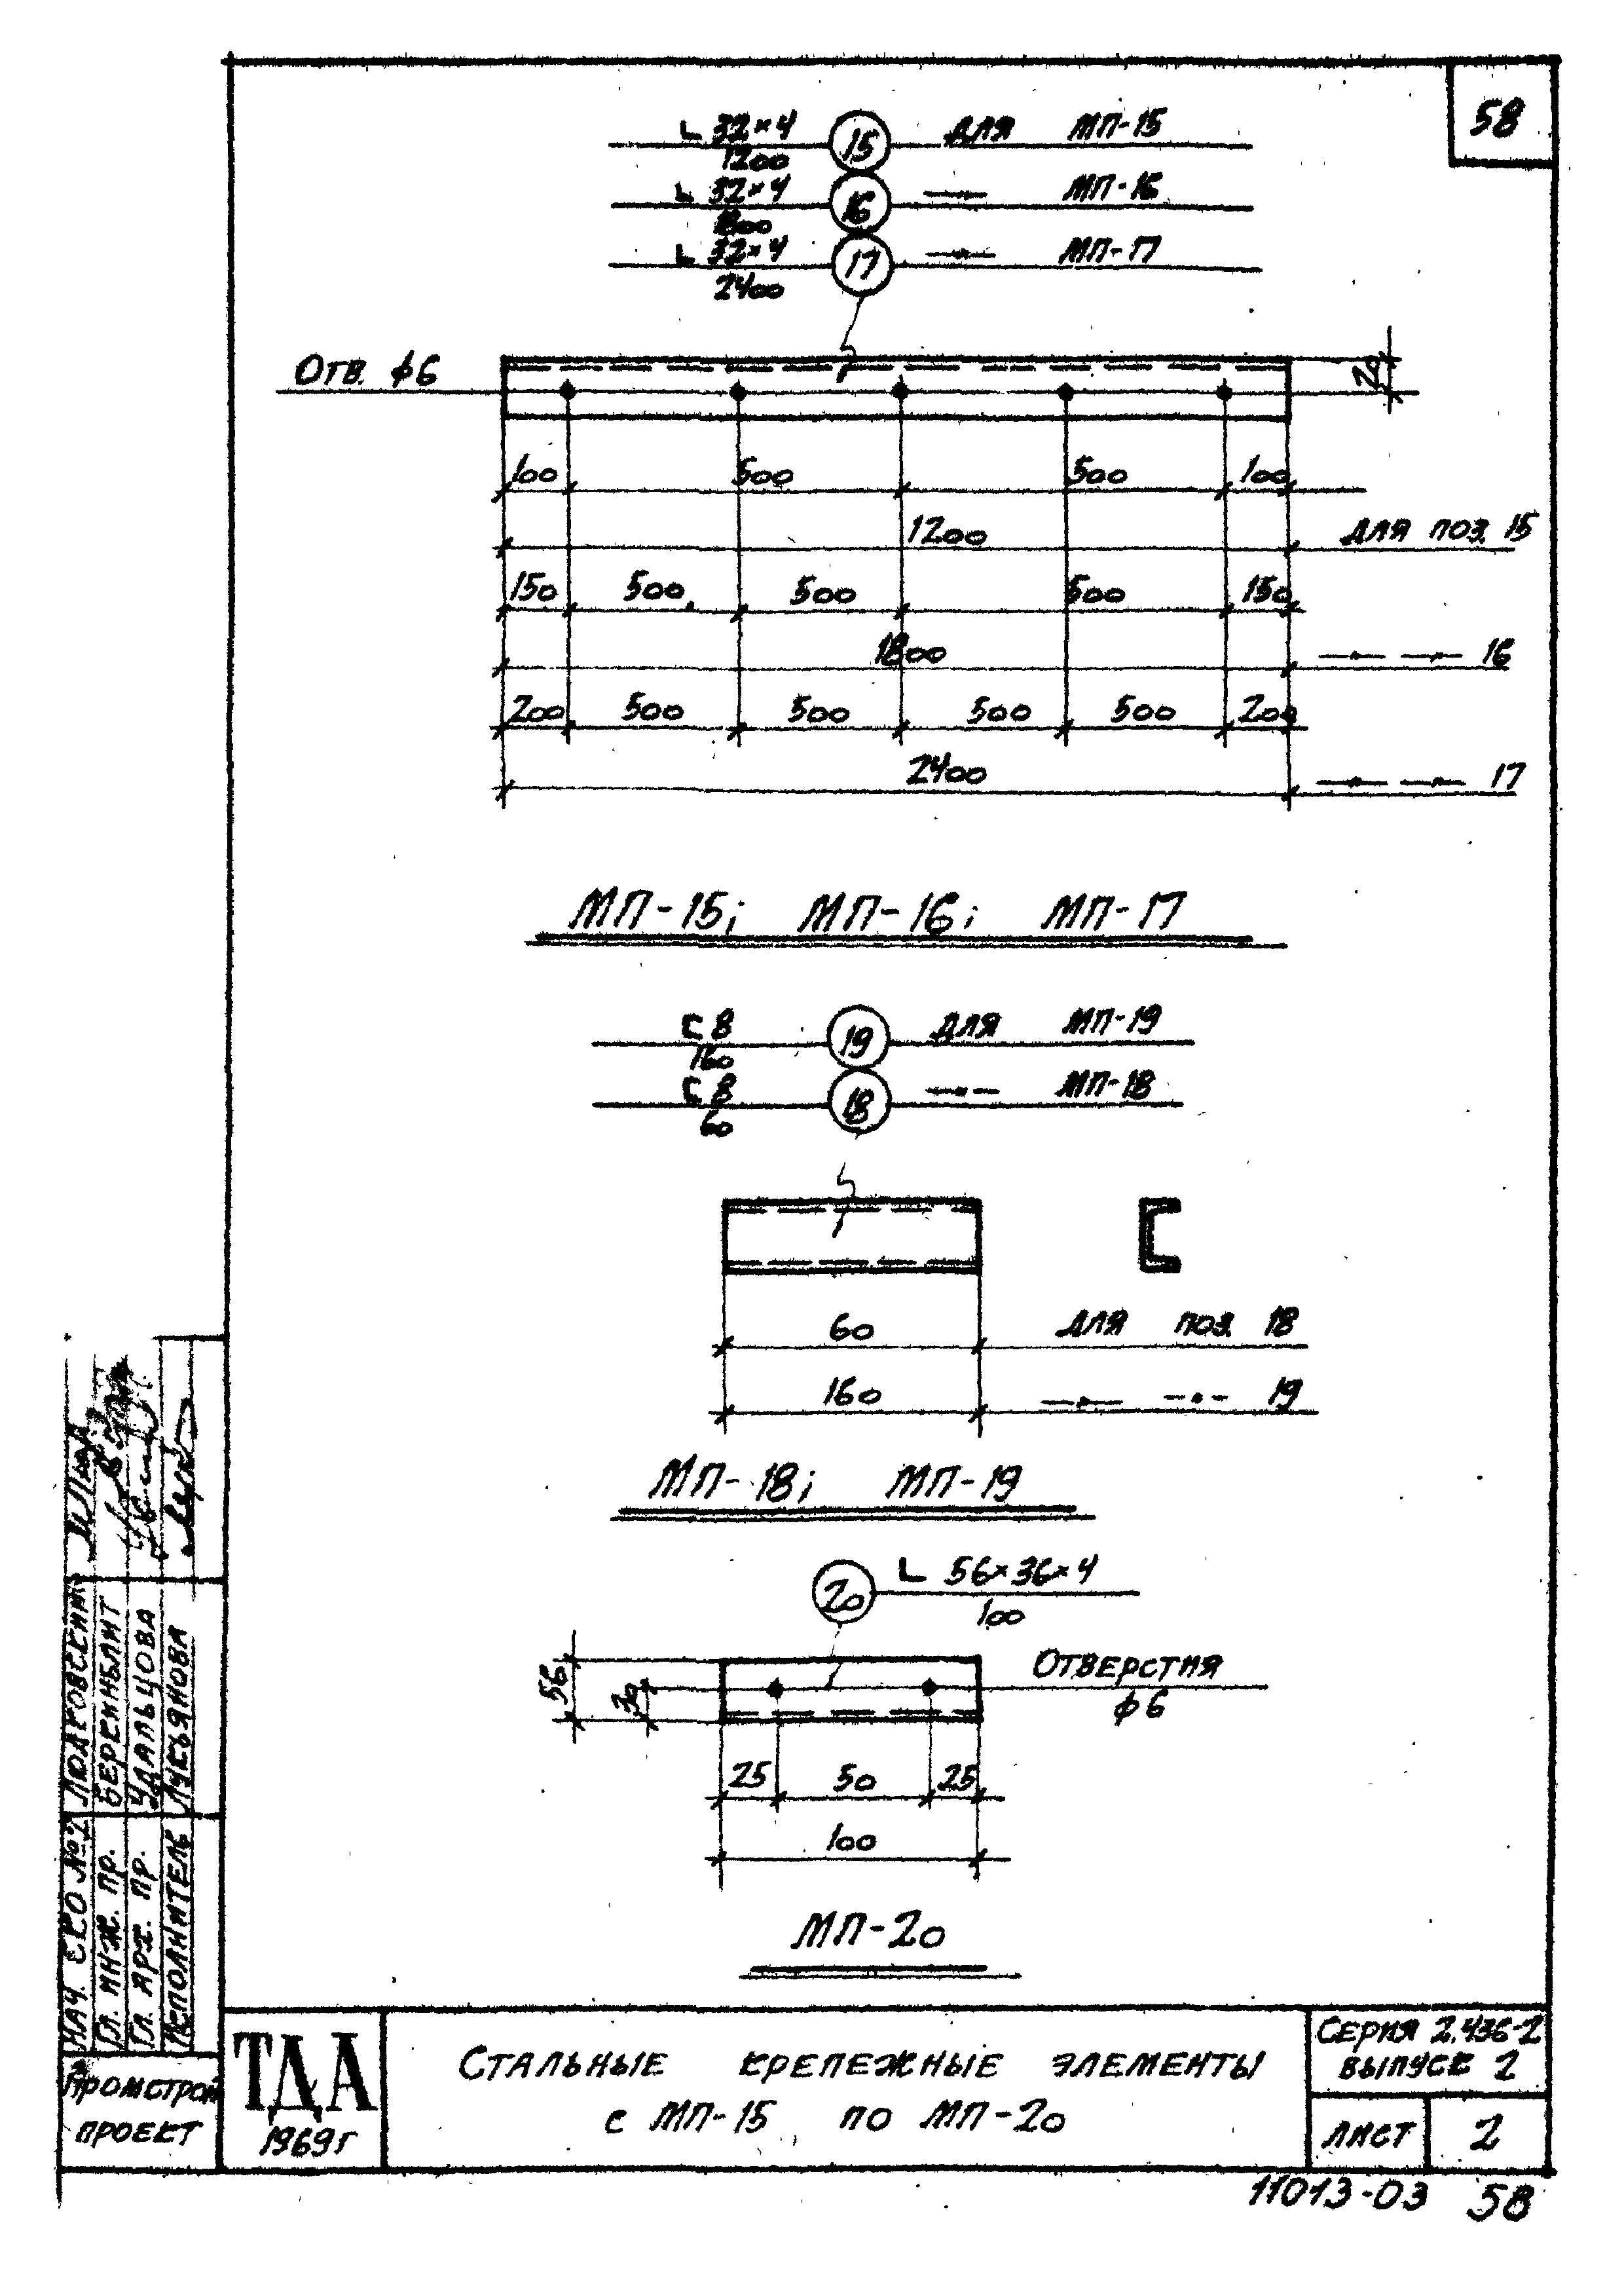 58
L 32×4 15 ДЛЯ МП-15
1200
L 32×4 16 —"— МП-16
1800
L 32×4 17 —"— МП-17
2400
ОТВ. ϕ6
20
100 500 500 100
1200 ДЛЯ ПОЗ. 15
150 500 500 500 150
1800 —"— —"— 16
200 500 500 500 500 200
2400 —"— —"— 17
МП-15; МП-16; МП-17
[ 8 19 ДЛЯ МП-19
160
[ 8 18 —"— МП-18
60
60 ДЛЯ ПОЗ. 18
160 —"— —"— 19
МП-18; МП-19
20 L 56×36×4
100
56 30 ОТВЕРСТИЯ
ϕ6
25 50 25
100
МП-20
НАЧ. СКО №2
ГЛ. ИНЖ. ПР. БЕРКИНБЛИТ
ГЛ. АРХ. ПР. УДАЛЬЦОВА
ИСПОЛНИТЕЛЬ ЛУКЬЯНОВА
ПРОМСТРОЙ
ПРОЕКТ
ТДА
1969 г
СТАЛЬНЫЕ КРЕПЕЖНЫЕ ЭЛЕМЕНТЫ
С МП-15 ПО МП-20
СЕРИЯ 2.436-2
ВЫПУСК 2
ЛИСТ 2
11013-03 58